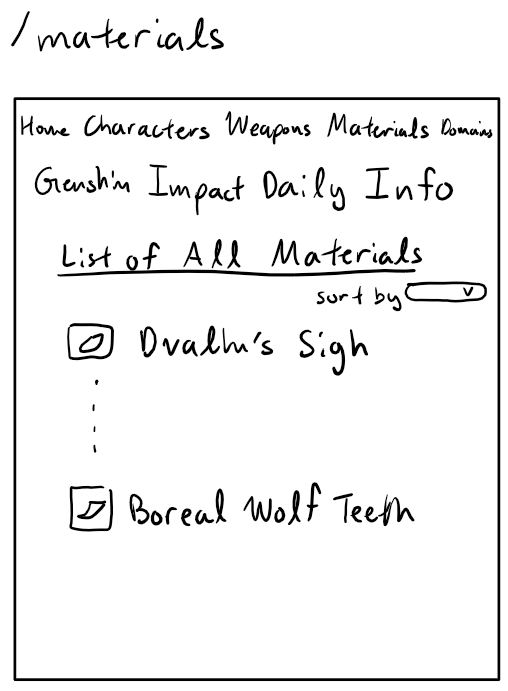 /materials
Home Characters Weapons Materials Domains
Genshin Impact Daily Info
List of All Materials
sort by
Dvalin's Sigh
Boreal Wolf Teeth